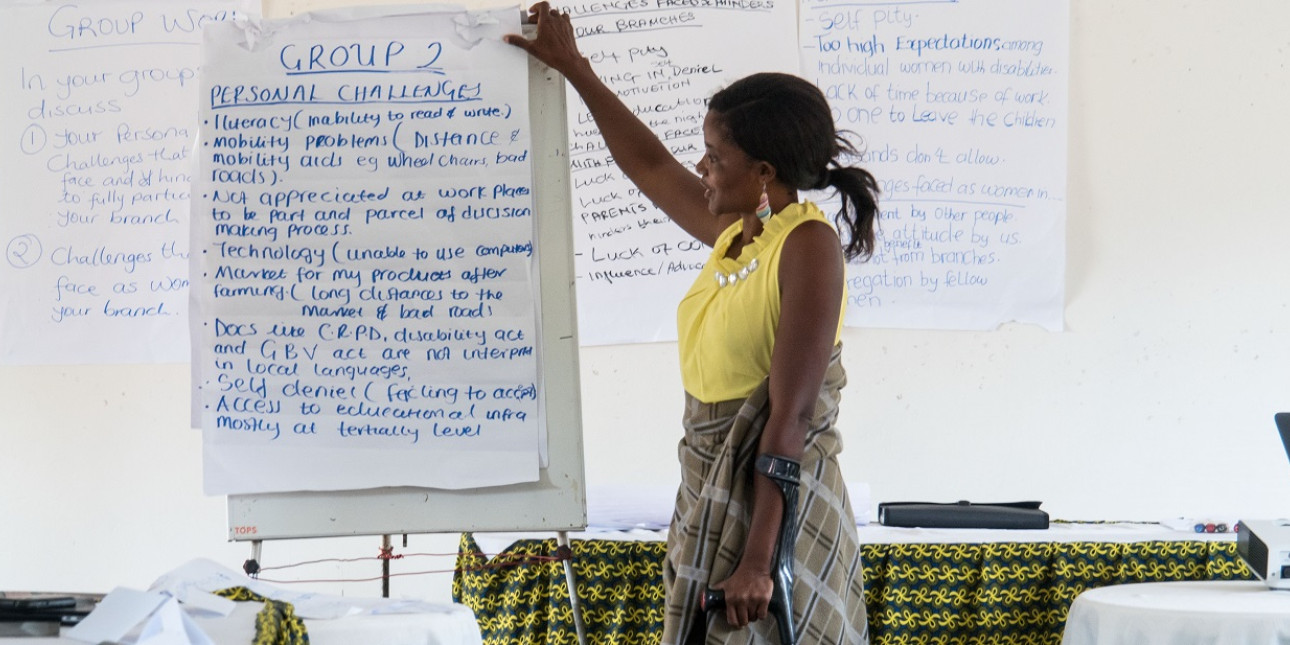 GROUP WO
In your group
discuss
① Your Persona
Challenges that
face and
to fully partic
your branch
② Challenges th
face as wom
your branch.
GROUP 2
PERSONAL CHALLENGES
• Ilueracy (inability to read & wrute.)
• Mobility problems ( Distence &
mobility aids eg wheel chairs, bad
roads).
• Not appreciated at work places
to be part and parcel of ducision
making process.
• Technology ( unable to use computers)
• Market for my products after
farming. ( long distances to the
market & bad roads
• Docs like C.R.P.D, disability act
and GBV act are not interpre
in local languages,
• Self deniel ( facling to accept)
• Access to educational infra
mostly at tertially level
TOPS
CHALLENGES FACED & HINDERS
OUR BRANCHES
self pity
IN Deniel
MOTIVATION
education
the
FACE
OUR
Luck
Luck
PARENTS
hinders
- Luck of co
- Influence/Advoca
- Self pity.
- Too high Expectations among
individual women with disabilities.
ack of time because of work.
o one to Leave the Children
don't allow.
nges faced as women in
ent by other people.
attitude by us.
benefit
not from branches.
regation by fellow
men.